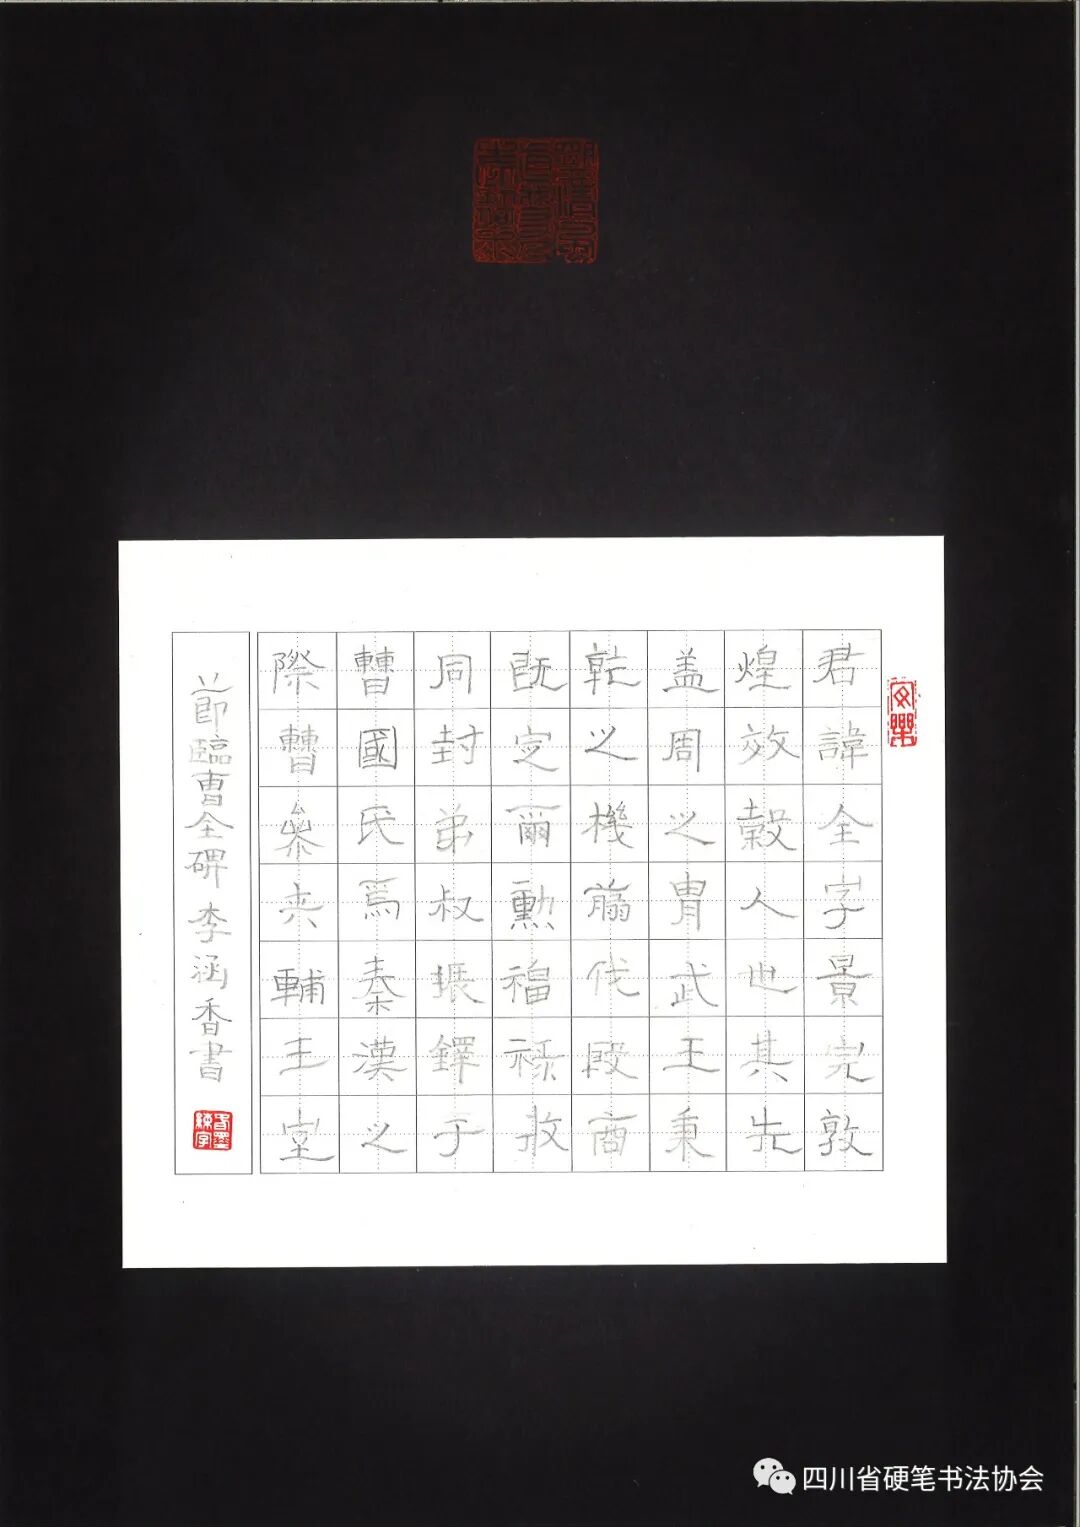 君諱全字景完敦
煌效穀人也其先
盖周之胄武王秉
乾之機翦伐殷商
既定爾勲福禄攸
同封弟叔振鐸于
曹國氏焉秦漢之
際曹參夾輔王室
節臨曹全碑 李涵香書
四川省硬笔书法协会